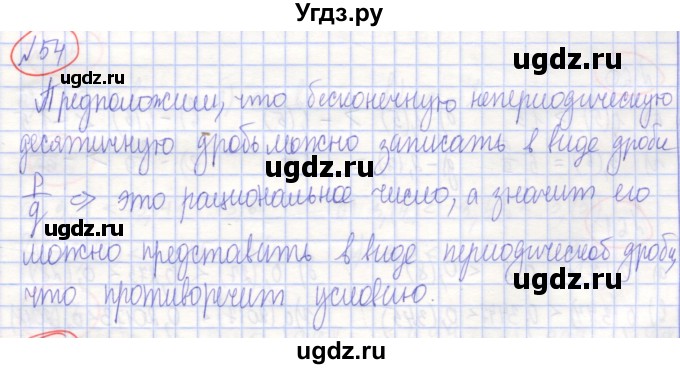 Угдз.ру
№54
ugdz.ru ugdz.ru
Предположим, что бесконечную непериодическую
десятичную дробь можно записать в виде дроби
ugdz.ru ugdz.ru
p/q => это рациональное число, а значит его
можно представить в виде периодической дроби,
ugdz.ru ugdz.ru
что противоречит условию.
ugdz.ru ugdz.ru